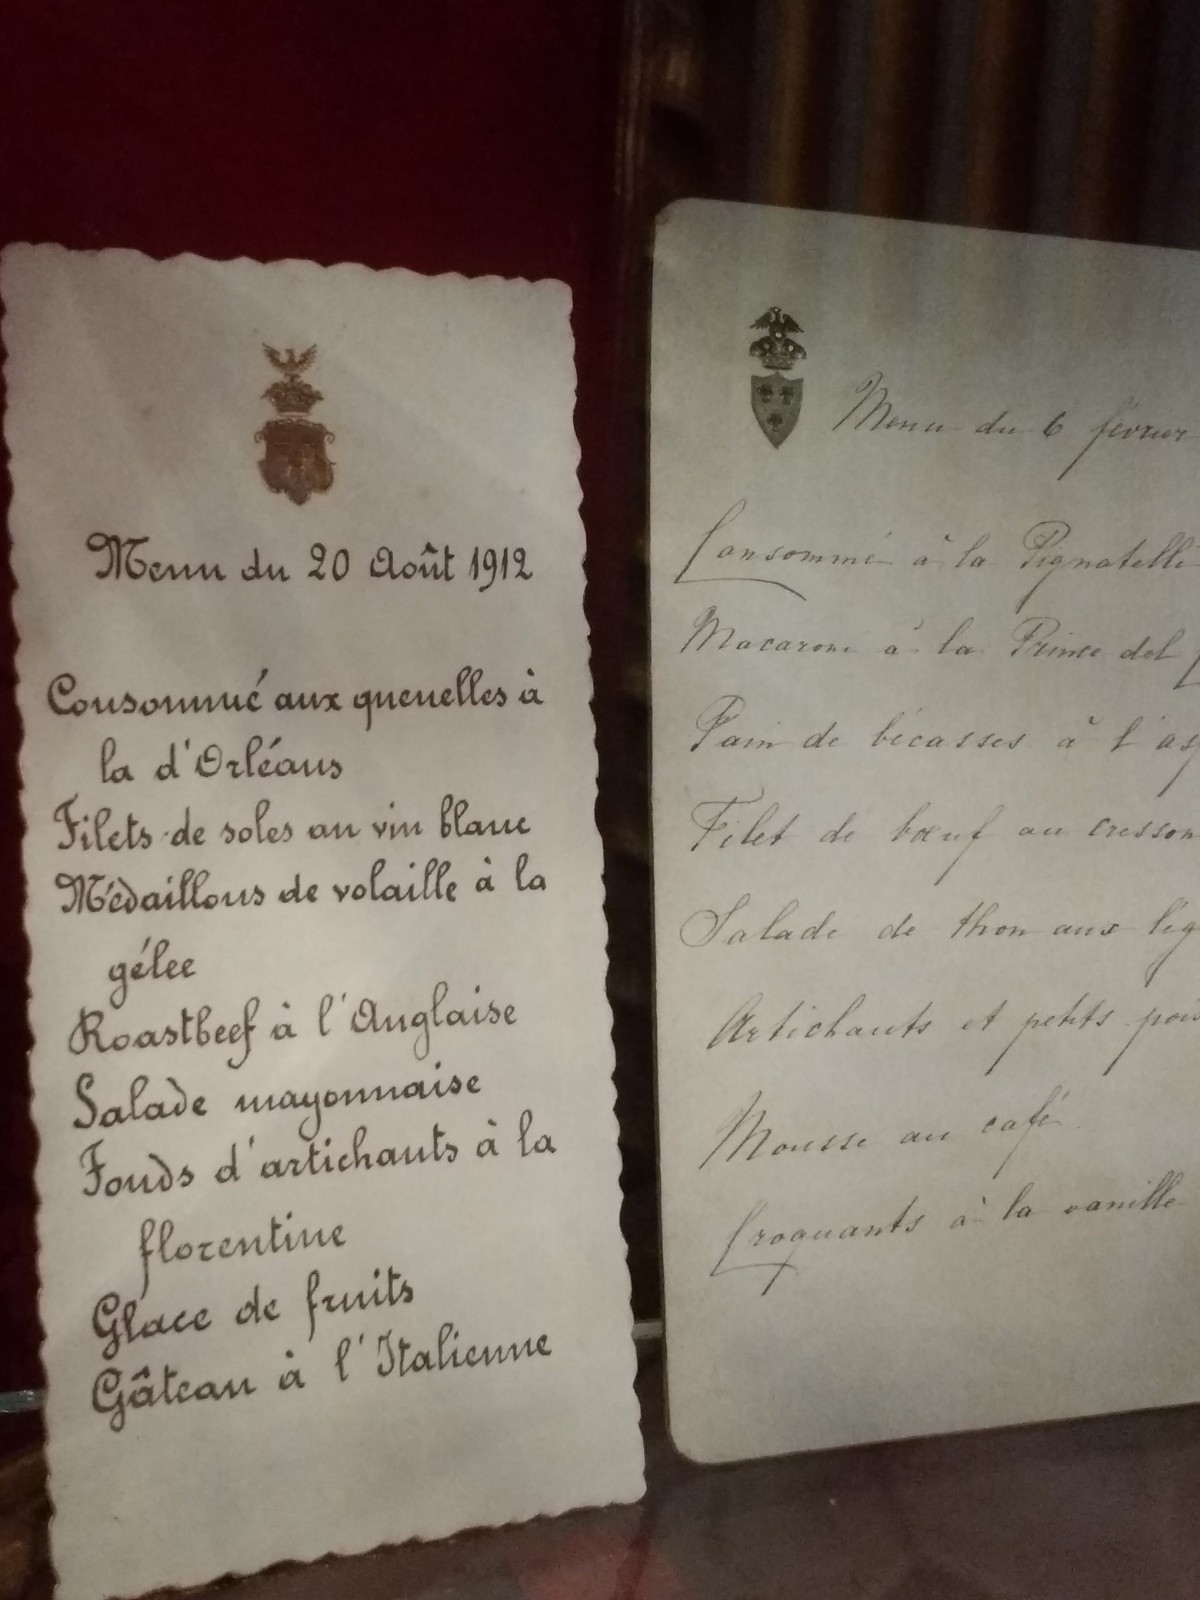 Menu du 20 Août 1912
Consommé aux quenelles à
la d'Orléans
Filets de soles au vin blanc
Médaillons de volaille à la
gélee
Roastbeef à l'Anglaise
Salade mayonnaise
Fonds d'artichauts à la
florentine
Glace de fruits
Gâteau à l'Italienne
Menu du 6 février
Consommé à la Pignatelli
Macaroni à la Prince del
Pain de bécasses à l'
Filet de bœuf au cresson
Salade de thon aux
Artichauts et petits pois
Mousse au café
Croquants à la vanille